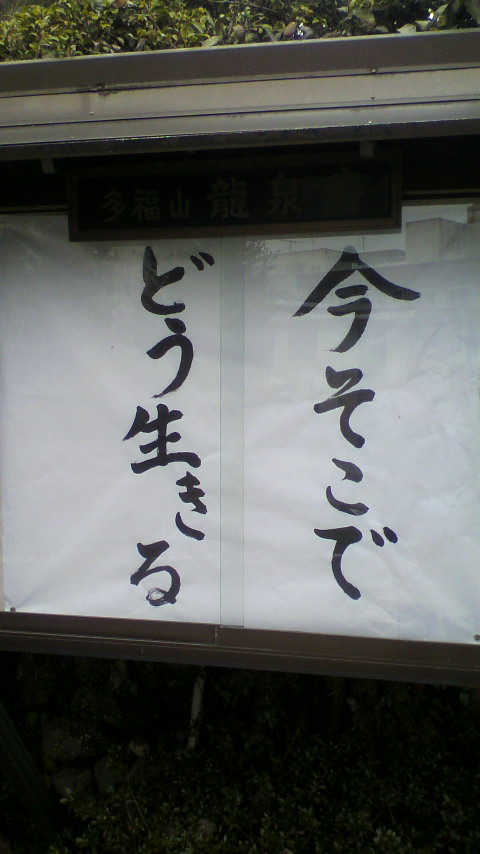 多福山 龍泉寺
今そこで
どう生きる